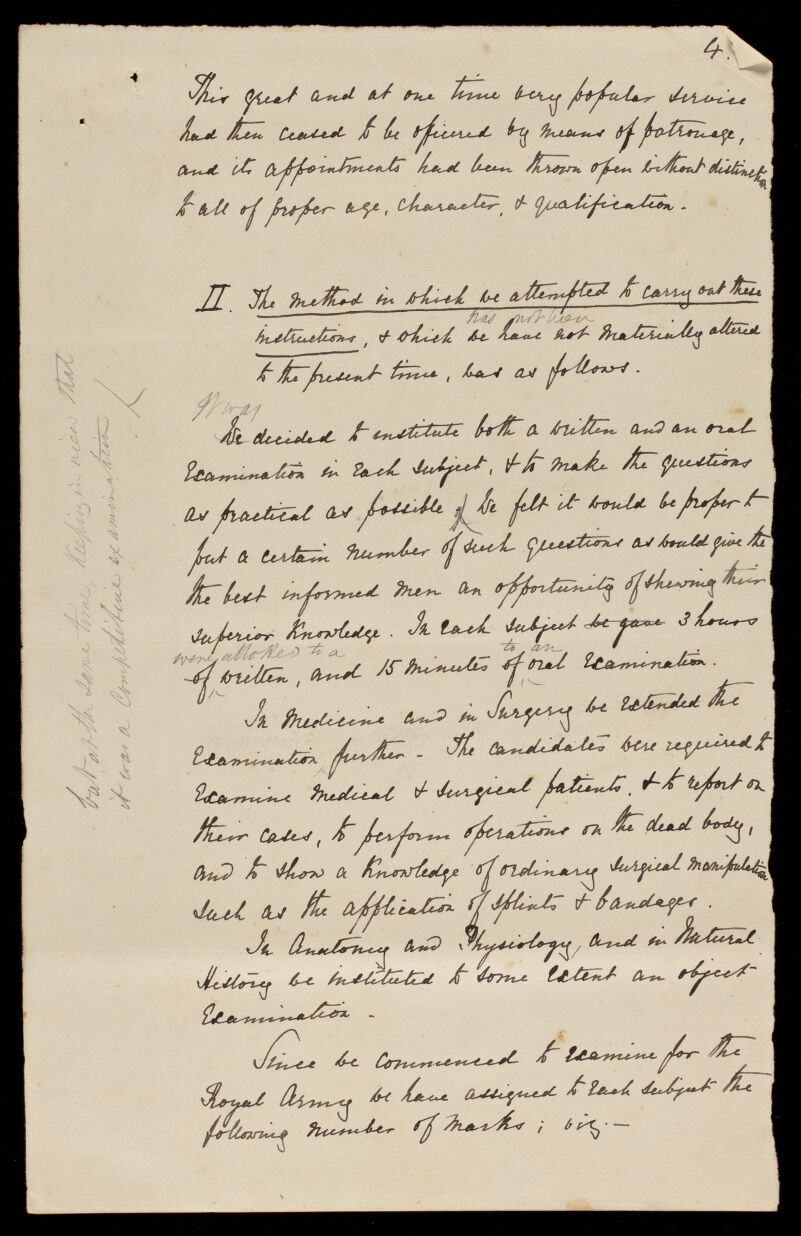 4.
This great and at one time very popular service
had then ceased to be oficered by means of patronage,
and its appointments had been thrown open without distinction
to all of proper age, character, & qualification.
II. The method in which we attempted to carry out these
has not been
instructions, & which we have not materially altered
to the present time, was as follows.
It was
We decided to institute both a written and an oral
Examination in Each subject, & to make the questions
as practical as possible. We felt it would be proper to
put a certain number of such questions as would give the
the best informed men an opportunity of shewing their
superior Knowledge. In Each subject we gave 3 hours
were allotted to a
to an
of written, and 15 minutes of oral Examination.
In Medicine and in Surgery we Extended the
Examination further - The candidates were required to
Examine Medical & Surgical patients, & to report on
their cases, to perform operations on the dead body,
and to show a Knowledge of ordinary surgical manipulation
such as the application of splints & bandages.
In Anatomy and Physiology, and in Natural
History we instituted to some Extent an object
Examination -
Since we commenced to Examine for the
Royal Army we have assigned to Each subject the
following number of Marks; viz. -
but at the same time, keeping in view that
it was a Competitive examination.